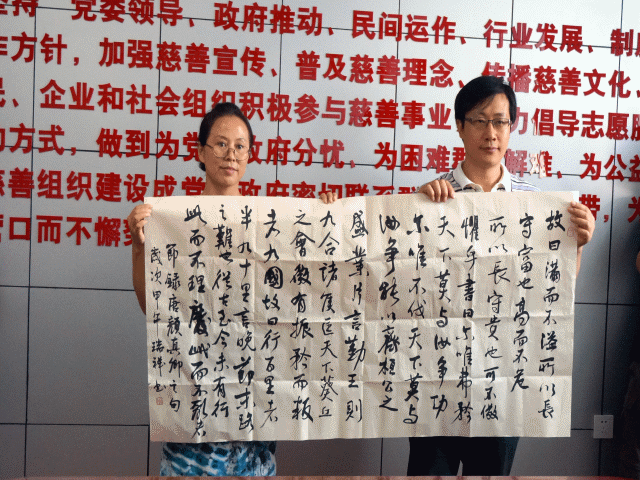 坚持 党委领导、政府推动、民间运作、行业发展、制度
作方针，加强慈善宣传、普及慈善理念、传播慈善文化、
民、企业和社会组织积极参与慈善事业 力倡导志愿服
的方式，做到为党 政府分忧，为困难群 解难，为公益
慈善组织建设成党 政府密切联系群 带，为
营口而不懈努
故曰滿而不溢所以長
守富也高而不危
所以長守貴也可不儆
懼乎書曰尔唯弗矜
天下莫与汝争功
尔唯不伐天下莫与
汝争能以齊桓公之
盛業片言勤王則
九合諸侯匡天下葵丘
之會微有振矜而叛
者九國故曰行百里者
半九十里言晚節末路
之難也從古至今未有行
此而不理廢此而不亂者
節錄唐顏真卿之句
歲次甲午 瑞祥書